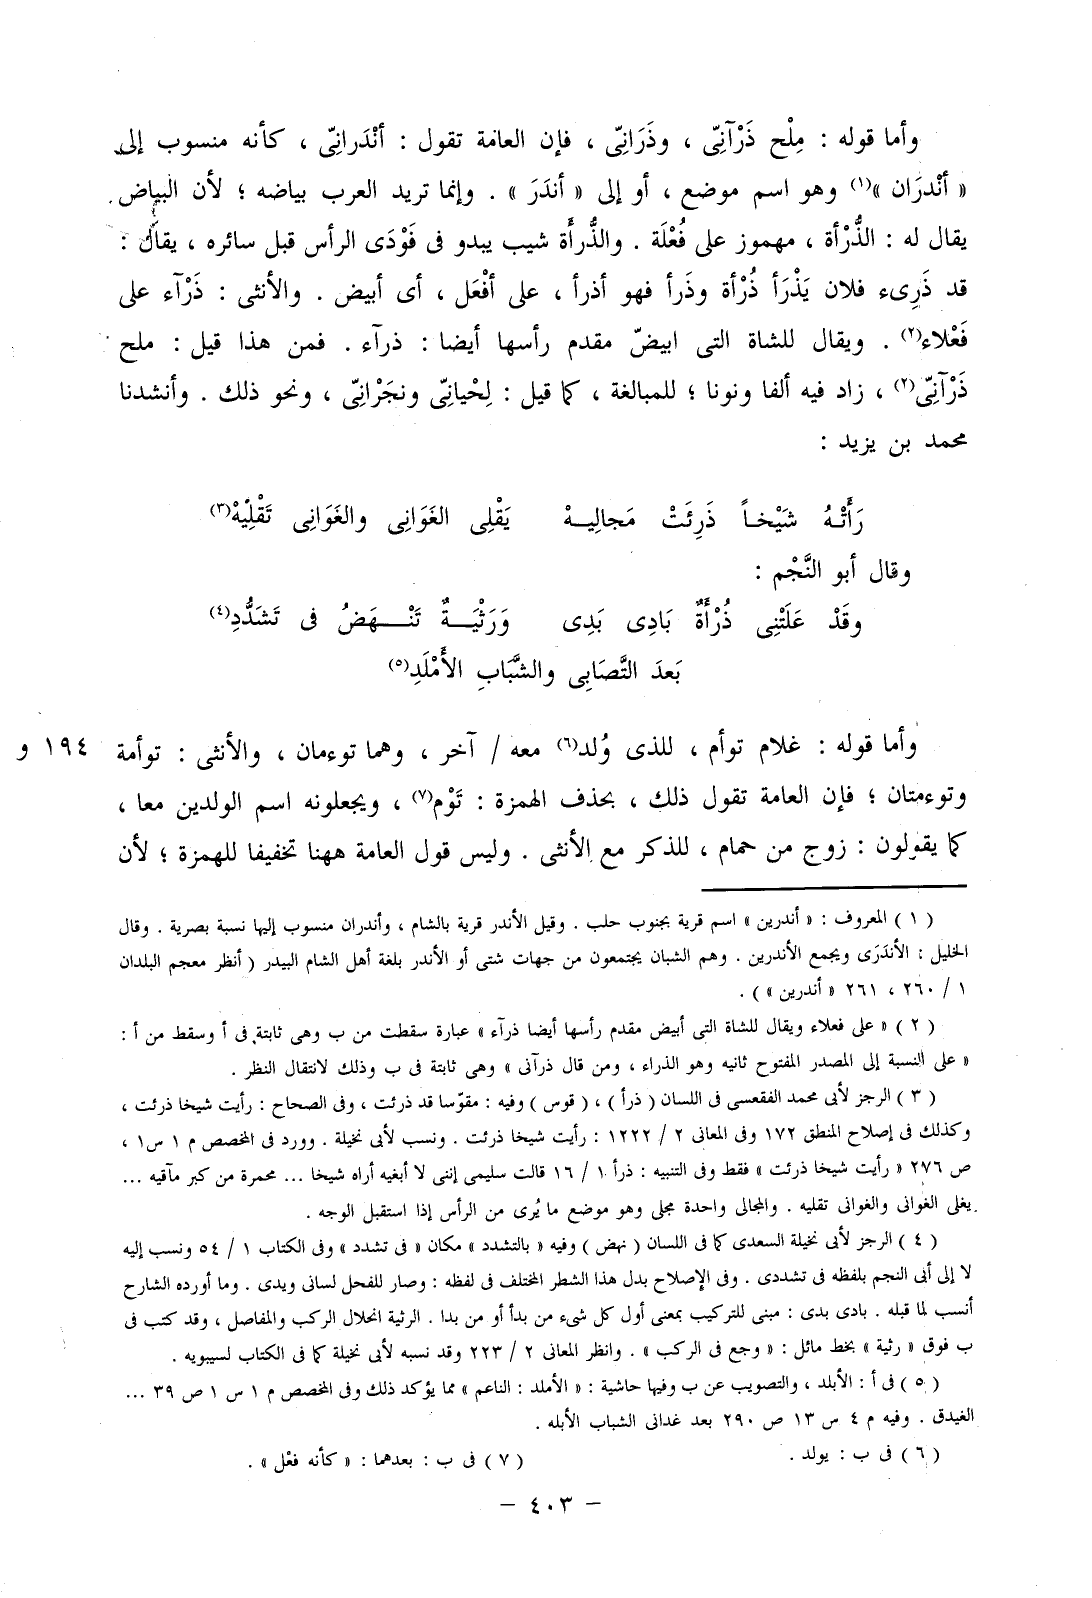 وأما قوله : مِلْح ذَرْآنِىّ ، وذَرَانِىّ ، فإن العامة تقول : أنْدَرانِىّ ، كأنه منسوب إلى
« أنْدرَان »(١) وهو اسم موضع ، أو إلى « أندَرَ » . وإنما تريد العرب بياضه ؛ لأن البياض
يقال له : الذُّرْأة ، مهموز على فُعْلَة . والذُّرأَة شيب يبدو فى فَوْدَى الرأس قبل سائره ، يقال :
قد ذَرِىء فلان يَذْرَأ ذُرْأة وذَرأ فهو أذرأ ، على أفْعَل ، أى أبيض . والأنثى : ذَرْآء على
فَعْلاء(٢) . ويقال للشاة التى ابيضّ مقدم رأسها أيضا : ذرآء . فمن هذا قيل : ملح
ذَرْآنِىّ(٢) ، زاد فيه ألفا ونونا ؛ للمبالغة ، كما قيل : لِحْيانِىّ ونجَرْانِىّ ، ونحو ذلك . وأنشدنا
محمد بن يزيد :
رَأَتْهُ شَيْخاً ذَرِئَتْ مَجالِيهْ يَقْلِى الغَوَانِى والغَوَانِى تَقْلِيْهْ(٣)
وقال أبو النَّجْم :
وقَدْ عَلَتْنِى ذُرْأَةٌ بَادِى بَدِى وَرَثْيَةٌ تَنْهَضُ فى تَشَدُّدِ(٤)
بَعدَ التَّصَابِى والشَّبَابِ الأَمْلَدِ(٥)
وأما قوله : غلام توأم ، للذى وُلد(٦) معه / آخر ، وهما توءمان ، والأنثى : توأمة ١٩٤ و
وتوءمتان ؛ فإن العامة تقول ذلك ، بحذف الهمزة : تَوْم(٧) ، ويجعلونه اسم الولدين معا ،
كما يقولون : زوج من حمام ، للذكر مع الأنثى . وليس قول العامة ههنا تخفيفا للهمزة ؛ لأن
( ١ ) المعروف : « أندرين » اسم قرية بجنوب حلب . وقيل الأندر قرية بالشام ، وأندران منسوب إليها نسبة بصرية . وقال
الخليل : الأندَرَى ويجمع الأندرين . وهم الشبان يجتمعون من جهات شتى أو الأندر بلغة أهل الشام البيدر ( أنظر معجم البلدان
١ / ٢٦٠ ، ٢٦١ « أندرين » ) .
( ٢ ) « على فعلاء ويقال للشاة التى أبيض مقدم رأسها أيضا ذرآء » عبارة سقطت من ب وهى ثابتة فى أ وسقط من أ :
« على النسبة إلى المصدر المفتوح ثانيه وهو الذراء ، ومن قال ذرآنى » وهى ثابتة فى ب وذلك لانتقال النظر .
( ٣ ) الرجز لأبى محمد الفقعسى فى اللسان ( ذرأ ) ، ( قوس ) وفيه : مقوّسا قد ذرئت ، وفى الصحاح : رأيت شيخا ذرئت ،
وكذلك فى إصلاح المنطق ١٧٢ وفى المعانى ٢ / ١٢٢٢ : رأيت شيخا ذرئت . ونسب لأبى نخيلة . وورد فى المخصص م ١ س١ ،
ص ٢٧٦ « رأيت شيخا ذرئت » فقط وفى التنبيه : ذرأ ١ / ١٦ قالت سليمى إننى لا أبغيه أراه شيخا ... محمرة من كبر مآقيه ...
يغلى الغوانى والغوانى تقليه . والمجالى واحدة مجلى وهو موضع ما يُرى من الرأس إذا استقبل الوجه .
( ٤ ) الرجز لأبى نخيلة السعدى كما فى اللسان ( نهض ) وفيه « بالتشدد » مكان « فى تشدد » وفى الكتاب ١ / ٥٤ ونسب إليه
لا إلى أبى النجم بلفظه فى تشددى . وفى الإصلاح بدل هذا الشطر المختلف فى لفظه : وصار للفحل لسانى ويدى . وما أورده الشارح
أنسب لما قبله . بادى بدى : مبنى للتركيب بمعنى أول كل شىء من بدأ أو من بدا . الرثية انحلال الركب والمفاصل ، وقد كتب فى
ب فوق « رثية » بخط مائل : « وجع فى الركب » . وانظر المعانى ٢ / ٢٢٣ وقد نسبه لأبى نخيلة كما فى الكتاب لسيبويه .
( ٥ ) فى أ : الأبلد ، والتصويب عن ب وفيها حاشية : « الأملد : الناعم » مما يؤكد ذلك وفى المخصص م ١ س ١ ص ٣٩ ...
الغيدق . وفيه م ٤ س ١٣ ص ٢٩٠ بعد غدانى الشباب الأبله .
( ٦ ) فى ب : يولد . ( ٧ ) فى ب : بعدهما : « كأنه فعْل » .
– ٤٠٣ –